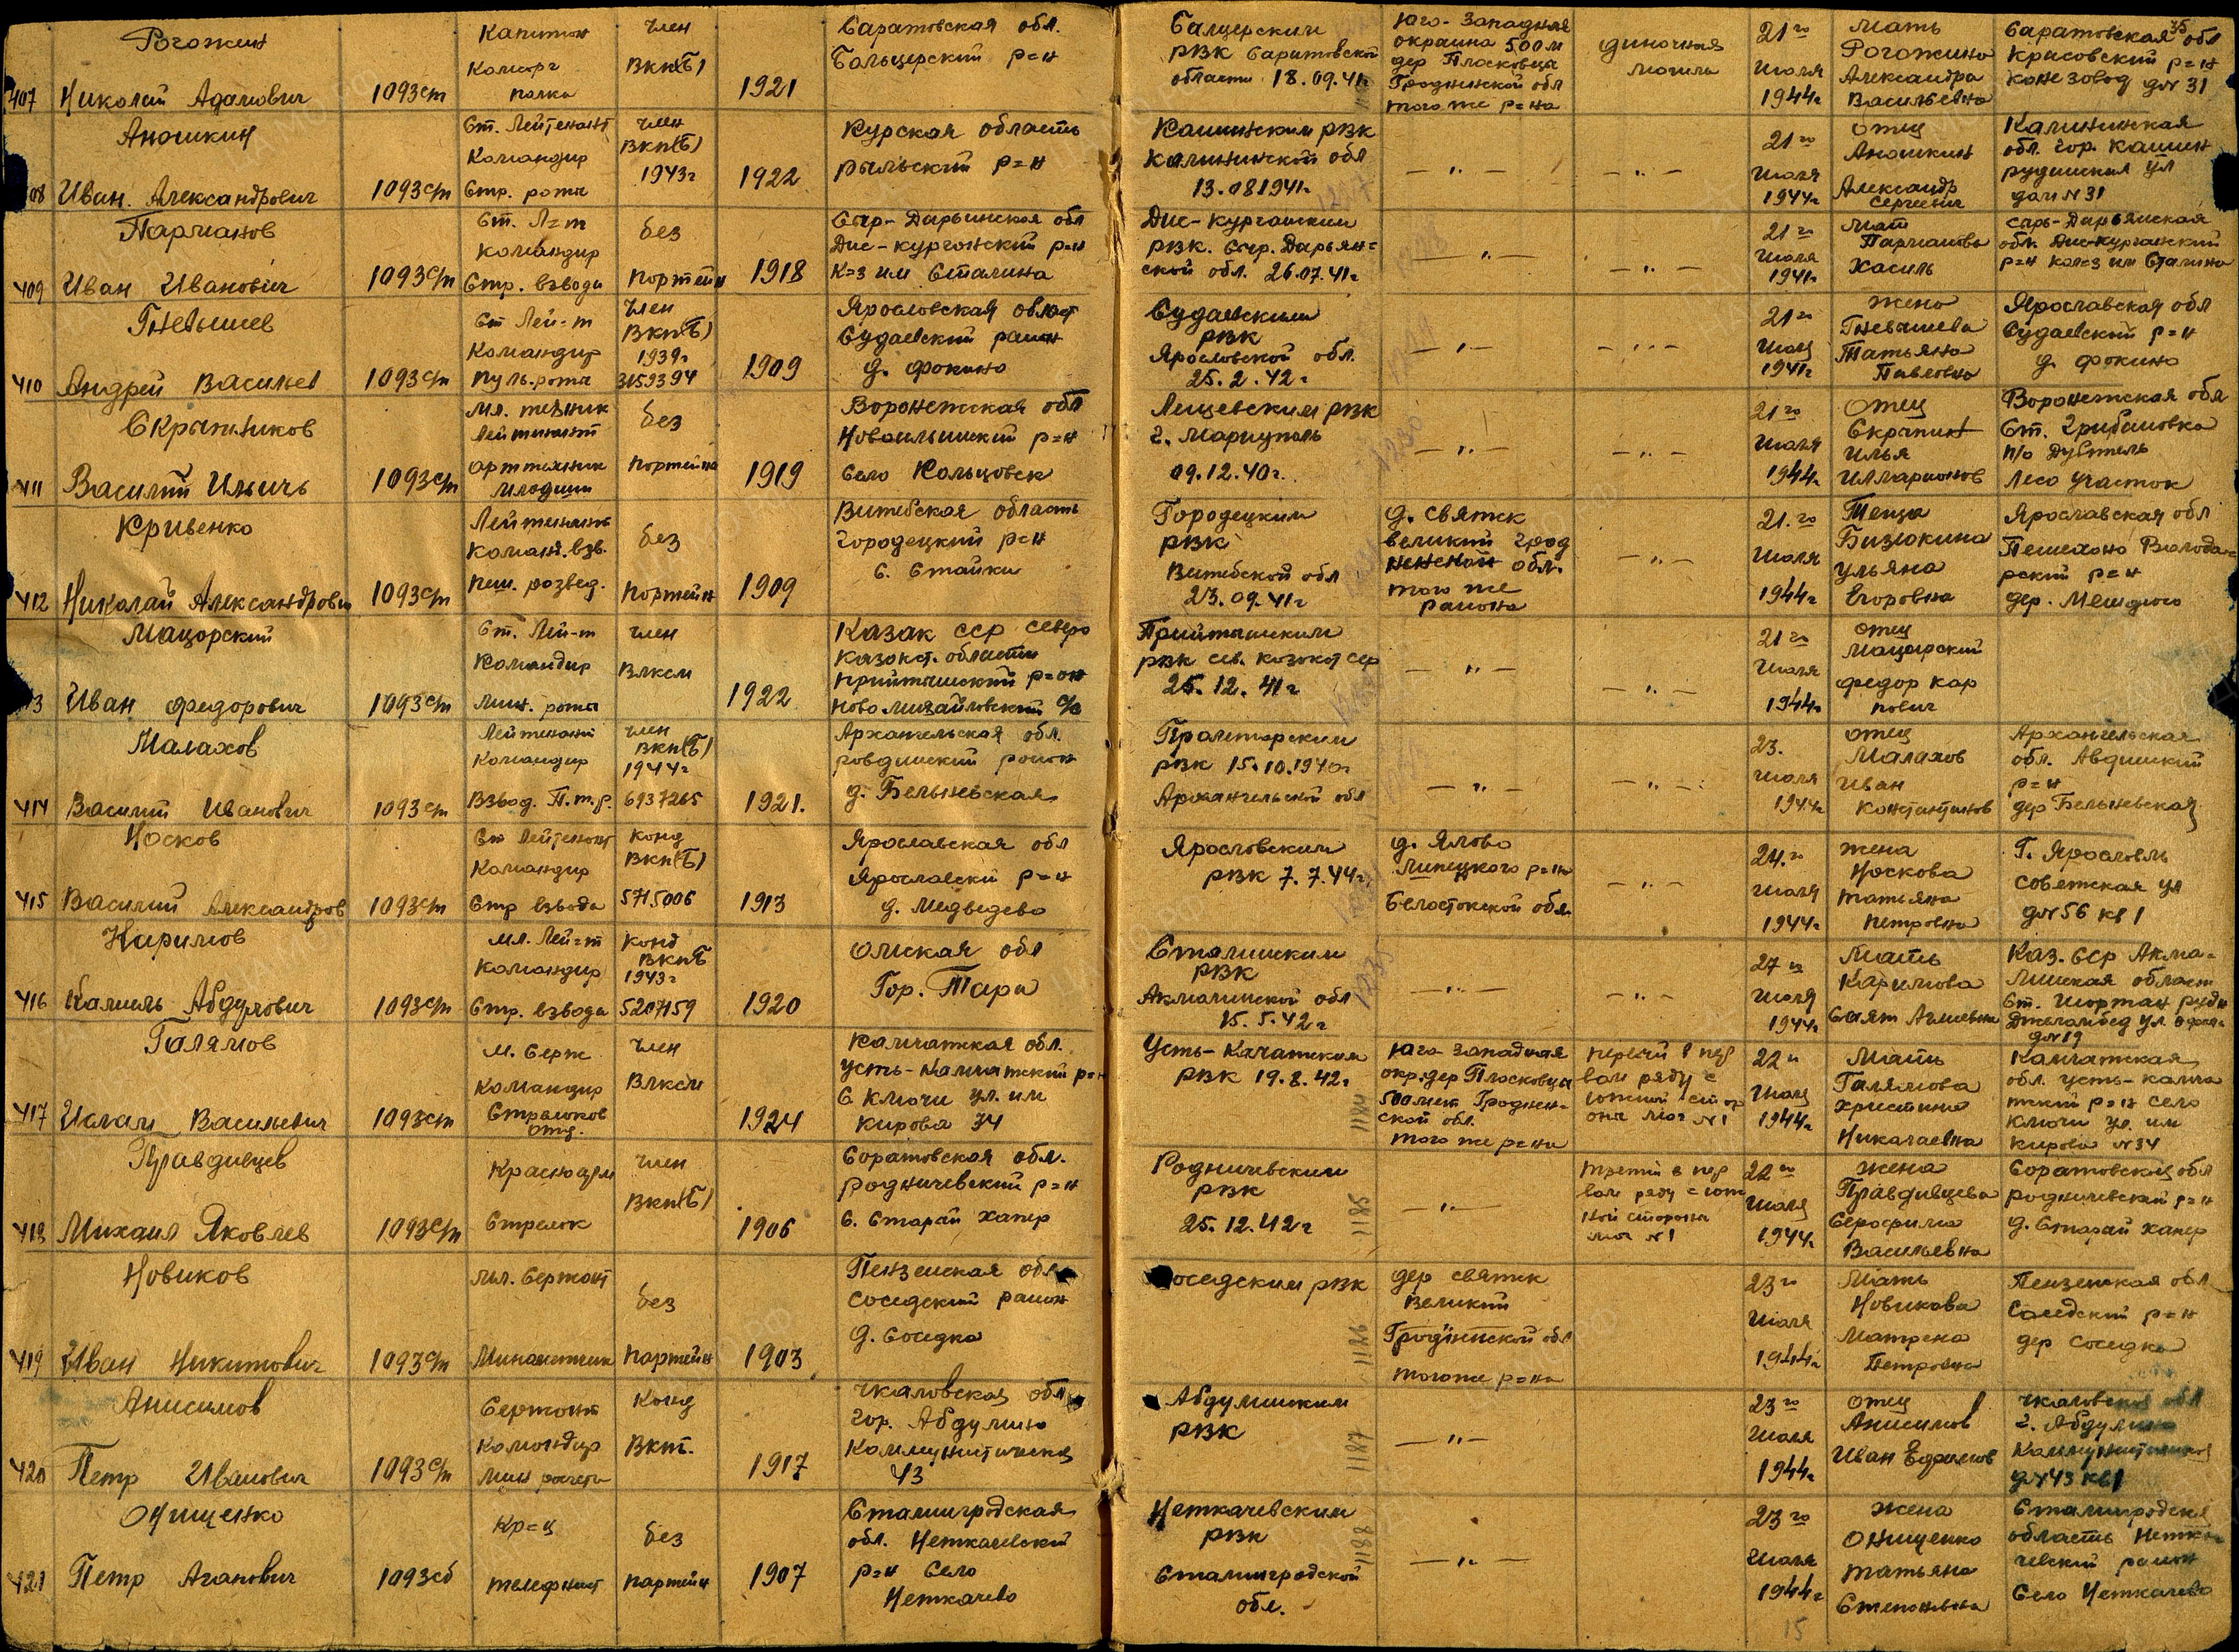 Рогожин
Николай Адамович
407
1093 сп
Капитан
Комсорг
полка
член
ВКП(б)
1921
Саратовская обл.
Бальцерский р=н
Бальцерским
РВК Саратовской
области 18.09.41г
Юго-Западная
окраина 500 м
дер Плосковцы
Гродненской обл
того же р=на
одиночная
могила
21го
июля
1944г
Мать
Рогожина
Александра
Васильевна
Саратовская обл
Красовский р=н
конезавод д№ 31
Анашкин
408 Иван. Александрович
1093 сп
Ст. Лейтенант
Командир
Стр. роты
член
ВКП(б)
1943г
1922
Курская область
Рыльский р=н
Кашинским РВК
Калининской обл
13.08 1941г.
— „ —
— „ —
21го
июля
1944г
отец
Анашкин
Александр
Сергеевич
Калининская
обл. гор. Кашин
ул
дом №31
Парманов
409 Иван Иванович
1093 сп
Ст. Л=т
Командир
Стр. взвода
без
партейн
1918
Сыр-Дарьинская обл
Дис-Курганский р=н
К=з им Сталина
Дис-Курганским
РВК. Сыр. Дарьян=
ской обл. 26.07.41г
— „ —
— „ —
21го
июля
1941г
мат
Парманова
Хасиль
Сыр-Дарьянская
обл. Дис-Курганский
р=н кол=з им Сталина
Гневышев
410 Андрей Васильев
1093 сп
Ст Лей=т
Командир
пуль.роты
член
ВКП(б)
1939г
3159394
1909
Ярославская област
Судаевский район
д. Фокино
Судаевским
РВК
Ярославской обл.
25.2.42г
— „ —
— „ —
21го
июля
1941г
жена
Гневышева
Татьяна
Павловна
Ярославская обл
Судаевский р=н
д. Фокино
Скрыпников
411 Василий Ильичь
1093 сп
Мл. техник
Лейтинант
арттехник
младший
без
партейн
1919
Воронежская обл
р=н
Село Кольцовск
РВК
г. Мариуполь
09.12.40г.
— „ —
— „ —
21го
июля
1944г
Отец
Скрыпник
Илья
Илларионов
Воронежская обл
Ст. Грибановка
п/о Дубтель
Лесо участок
Кривенко
412 Николай Александрович
1093 сп
Лейтенант
Команд. взв.
пеш. развед.
без
партейн
1909
Витебская область
Городецкий р=н
с. Стайки
Городецким
РВК
Витебской обл
23.09.41г
д. Святск
великий Грод
ненской обл.
того же
района
— „ —
21.го
июля
1944г
Теща
Бизюкина
Ульяна
Егоровна
Ярославская обл
Пешехоно Володар
рский р=н
дер.
Мацорский
Иван Федорович
1093 сп
Ст. Лей-т
Командир
Мин. роты
член
Влксм
1922
Казак сср северо
казахст. области
Прийтышский р=он
Ново-Михайловский с/с
Прийтышским
РВК сев. казахст сср
25.12.41г
— „ —
— „ —
21го
июля
1944г
отец
Мацорский
Федор Кар
пович
Малахов
414 Василий Иванович
1093 сп
Лейтенант
Командир
Взвод. П.т.р.
член
ВКП(б)
1944г
6937265
1921.
Архангельская обл.
ровдинский район
д. Бельневская
Пролетарским
РВК 15.10.1940г
Архангельской обл
— „ —
— „ —
23.
июля
1944г
отец
Малахов
Иван
Константинов
Архангельская
обл. Авдинский
р=н
дер Бельневская
Носков
415 Василий Александров
1093 сп
Ст Лейтенант
Командир
Стр взвода
Конд
ВКП(б)
5715006
1913
Ярославская обл
Ярославский р=н
д. Медведево
Ярославским
РВК 7.7.44г.
д. Ялово
Липецкого р=на
Белостокской обл.
— „ —
24.го
июля
1944г
жена
Носкова
Татьяна
Петровна
Г. Ярославль
Советская ул
д№56 кв1
Каримов
416 Камиль Абдулович
1093 сп
Мл. Лей=т
Командир
Стр. взвода
Конд
ВКПБ
1943г
5207159
1920
Омская обл
Гор. Тара
Сталинским
РВК
Акмолинской обл
15.5.42г
— „ —
— „ —
27го
июля
1944г
Мать
Каримова
Саят
Каз. ССР Акмо=
линская област
Ст. Шортан рудн
Джеламбед ул.
д№19
Галямов
417 Ислам Васильевич
1093 сп
М. Серж
Командир
Стрелков
отд.
член
Влксм
1924
Камчатская обл.
Усть-Камчатский р=н
с Ключи ул. им
Кирова 34
Усть-Качатском
РВК 19.8.42г
1184
Юго Западная
окр.дер Плосковцы
500 мет Гроднен-
ской обл.
того же р=на
первый в пер
вом ряду с
южной стор
оны мог №1
22го
июля
1944г
Мать
Галямова
Христина
Николаевна
Камчатская
обл. Усть-Камча
тский р=н село
Ключи ул. им
Кирова №34
Правдивцев
418 Михаил Яковлев
1093 сп
Красноарм
Стрелок
член
ВКП(б)
1906
Саратовская обл.
родничевский р=н
с. Старай Хапер
Родничевским
РВК
25.12.42г
1185
— „ —
третий в пер
вом ряду с юж
ной стороны
мог №1
22го
июля
1944г
жена
Правдивцева
Серафима
Васильевна
Саратовская обл
родничевский р=н
д. Старай Хапер
Новиков
419 Иван Никитович
1093 сп
Мл. Сержант
Минометчик
без
партейн
1903
Пензенская обл
Соседский район
д. Соседка
Соседским РВК
1186
дер Святск
Великий
Гродненской обл
того же р=на
23го
июля
1944г
Мать
Новикова
Матрена
Петровна
Пензенская обл
Соседский р=н
дер Соседка
Анисимов
420 Петр Иванович
1093 сп
Сержант
Командир
Мин расчета
Конд
Вкп.
1917
Чкаловская обл
гор. Абдулино
Коммунистическая
43
Абдулинским
РВК
1187
— „ —
23го
июля
1944г
отец
Анисимов
Иван Ефимов
Чкаловская обл
г. Абдулино
Коммунистическая
д№43 кв1
Онищенко
421 Петр Аганович
1093 сб
Кр=ц
телефнист
без
партейн
1907
Сталинградская
обл. Неткачевский
р=н Село
Неткачево
Неткачевским
РВК
Сталинградской
обл.
1188
— „ —
23го
июля
1944г
жена
Онищенко
Татьяна
Степановна
Сталинградская
область Нетка
чевский район
Село Неткачево
15